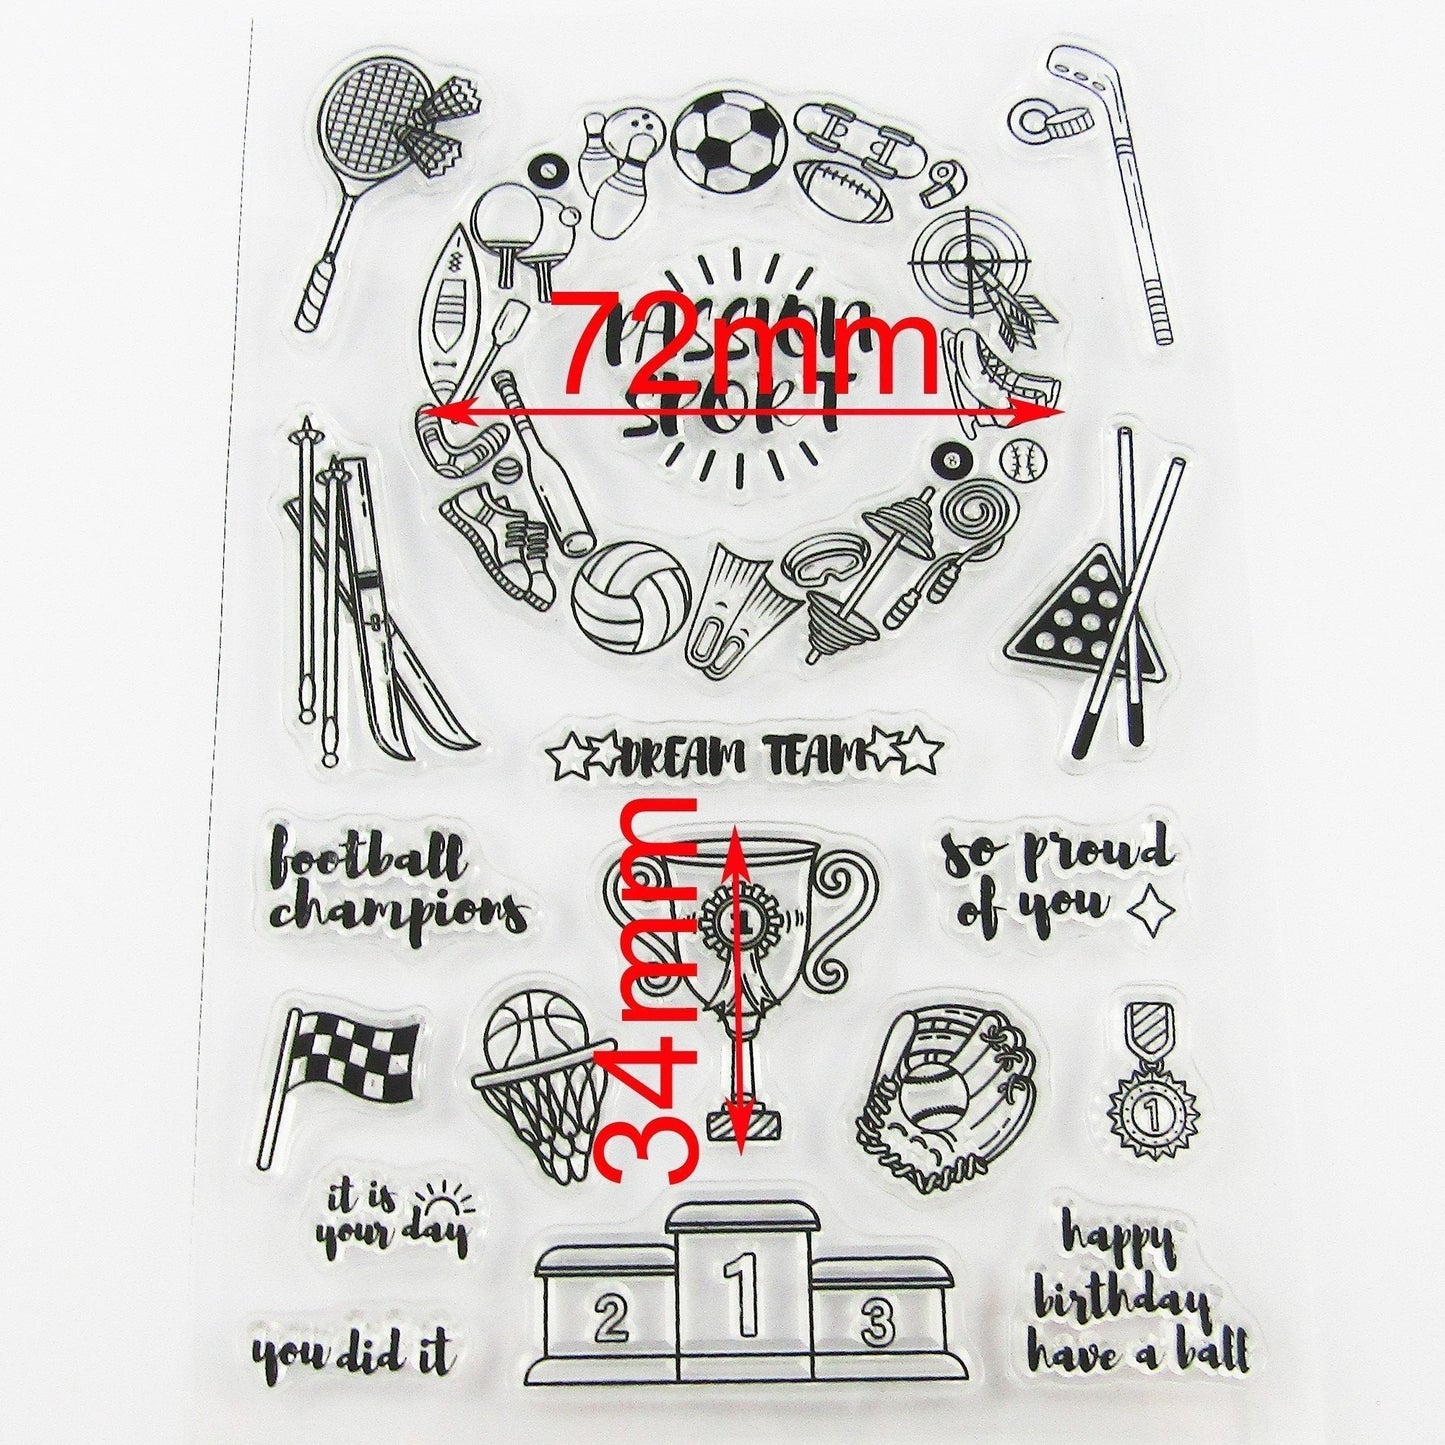 PASSION
72mm
SPORT
8
DREAM TEAM
football
champions
34mm
1
so proud
of you
1
it is
your day
1
2
3
happy
birthday
have a ball
you did it